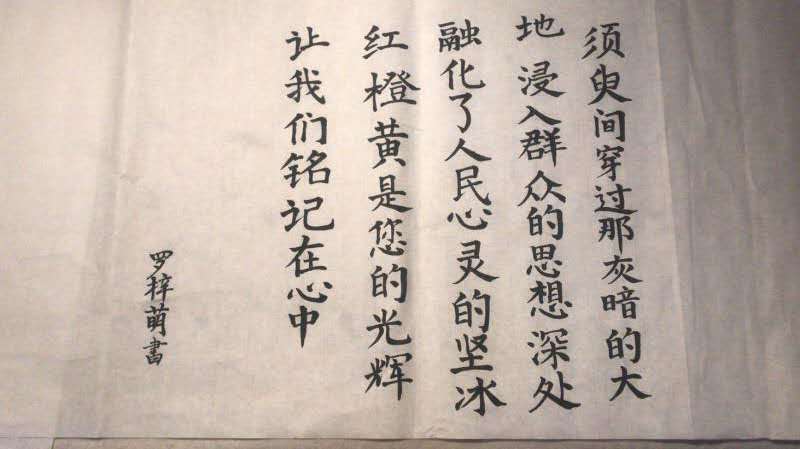 须臾间穿过那灰暗的大
地浸入群众的思想深处
融化了人民心灵的坚冰
红橙黄是您的光辉
让我们铭记在心中
罗梓萌書